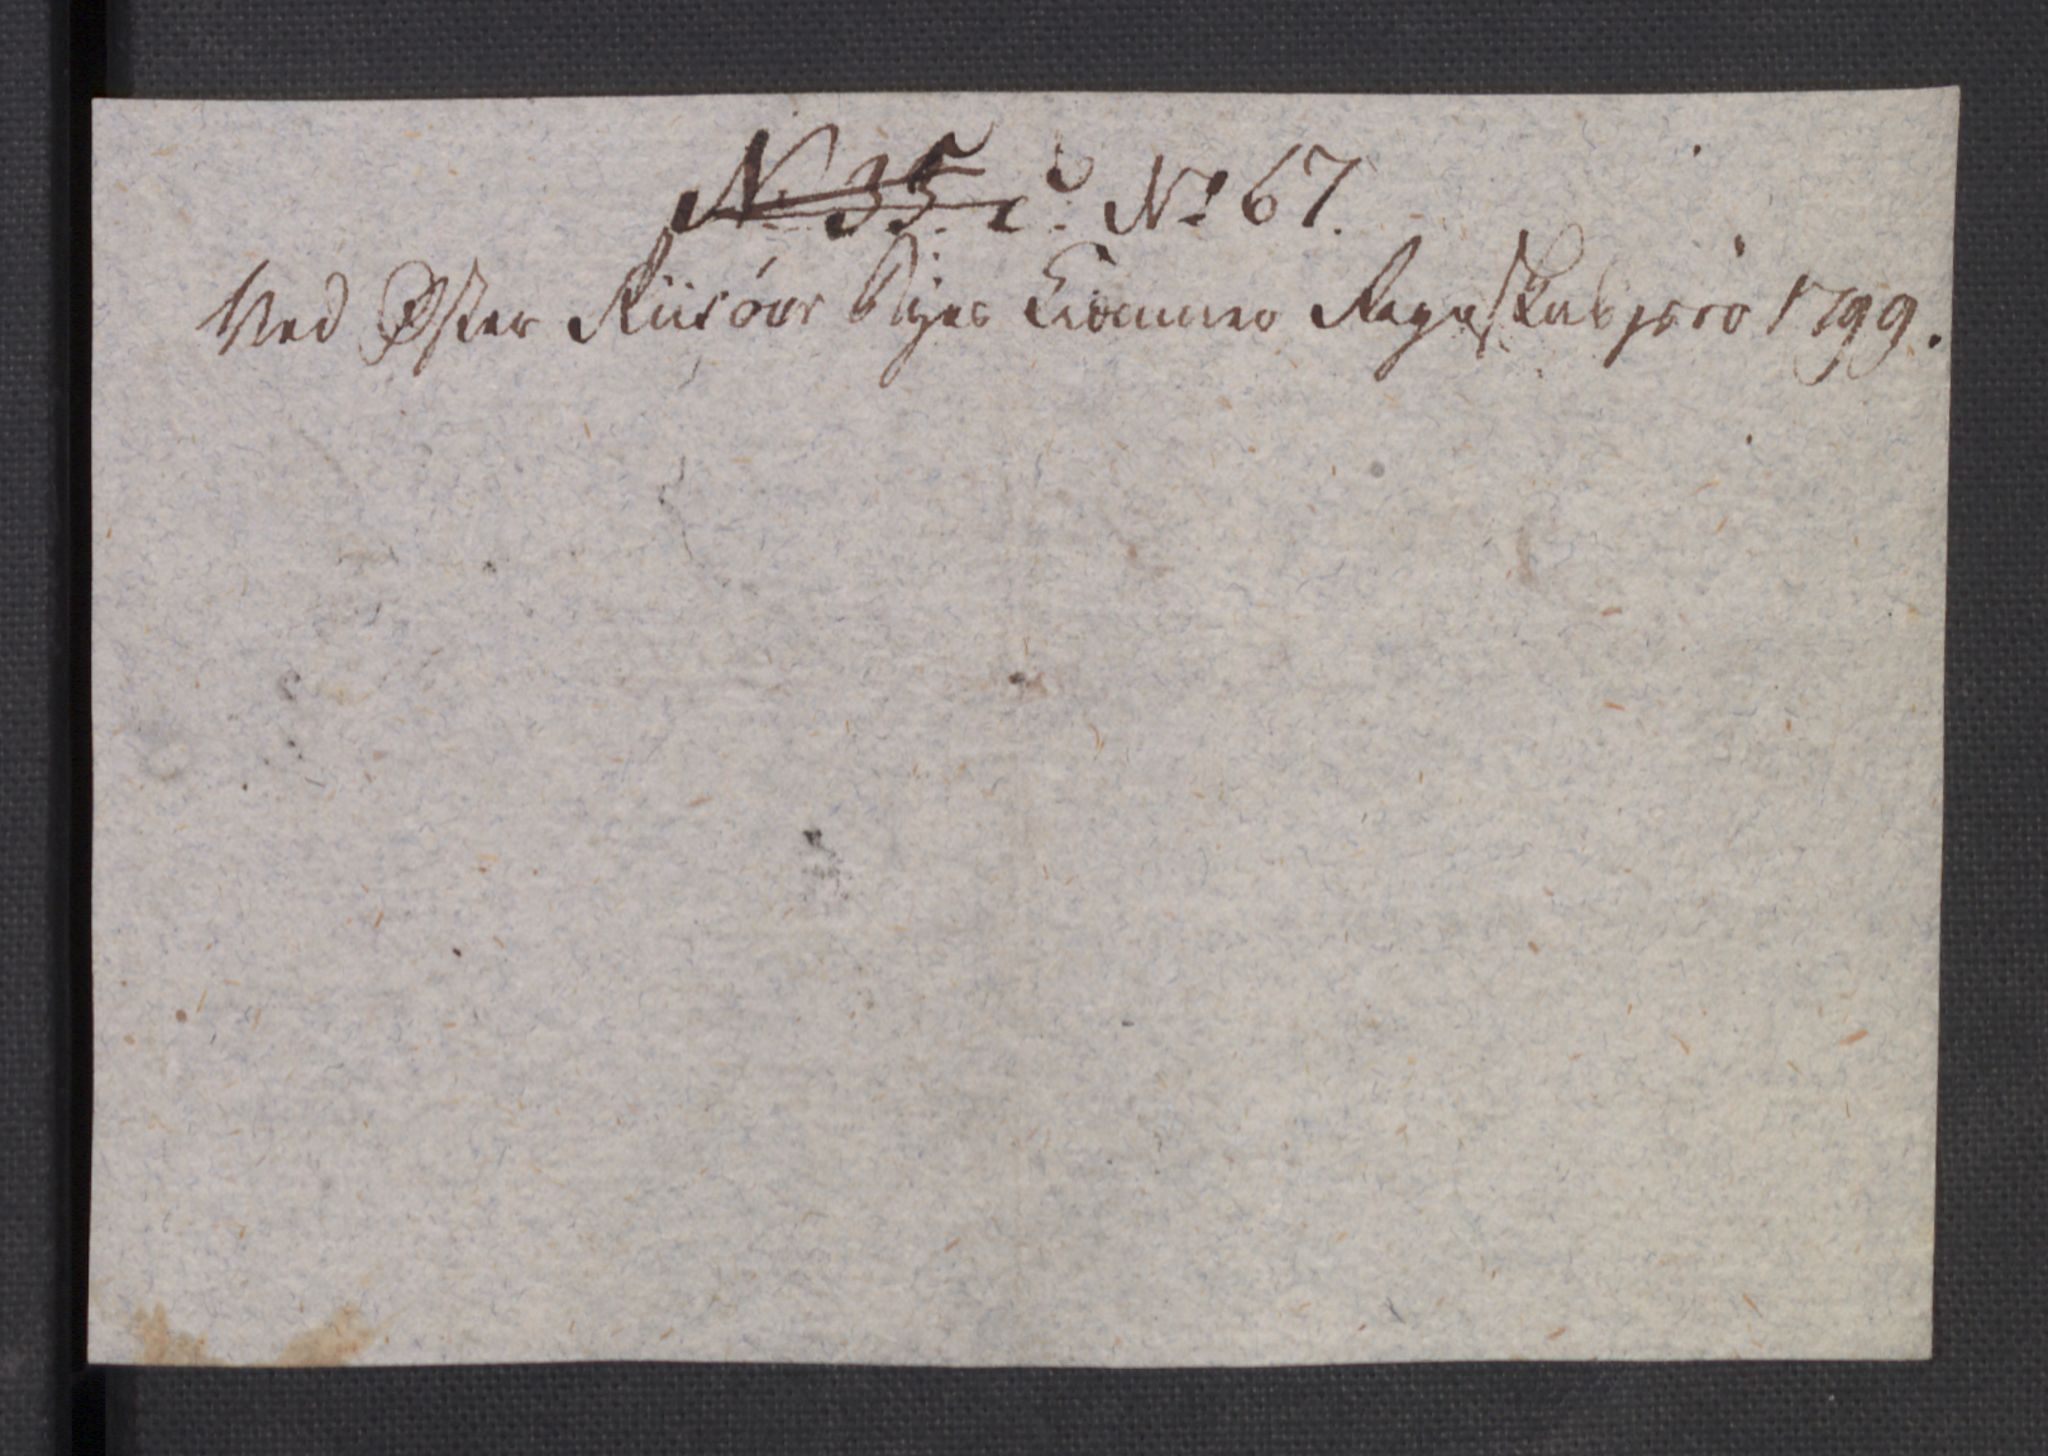 N. 35 No 67.
Ved Øster Riisöer Byes Kæmner Regnskab pro 1799.